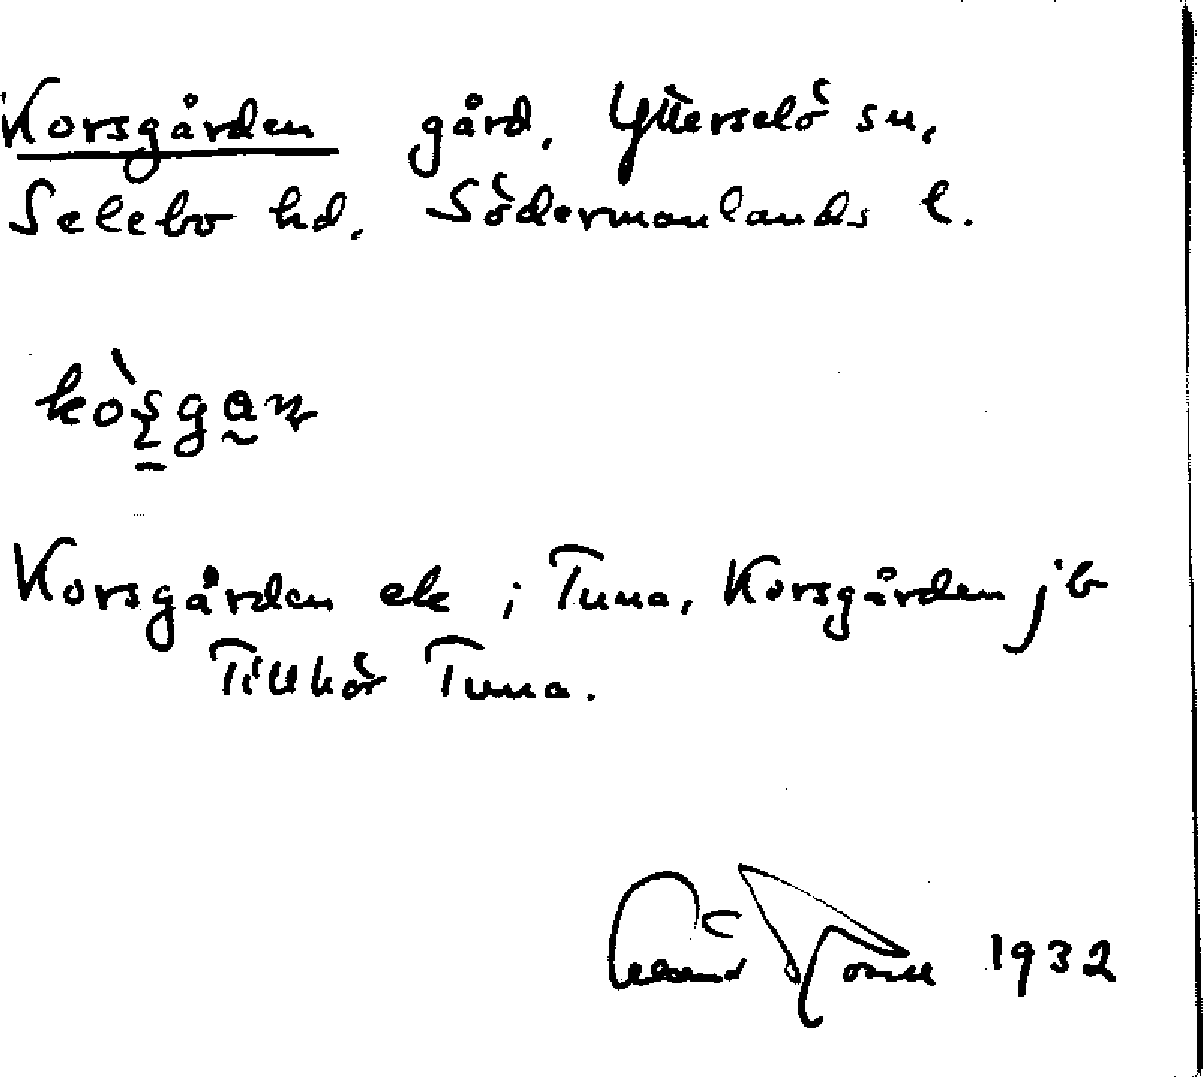 Korsgården gård, Ytterselö sn,
Selebo hd, Södermanlands l.
Korsgården ek i Tuna, Korsgården jb
Tillhör Tuna.
1932